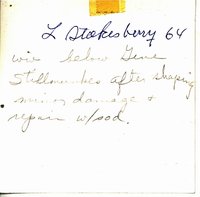 L Stokesberry 64
wix below Gene
Stillmunkes after shaping
minor damage &
repair w/sod.